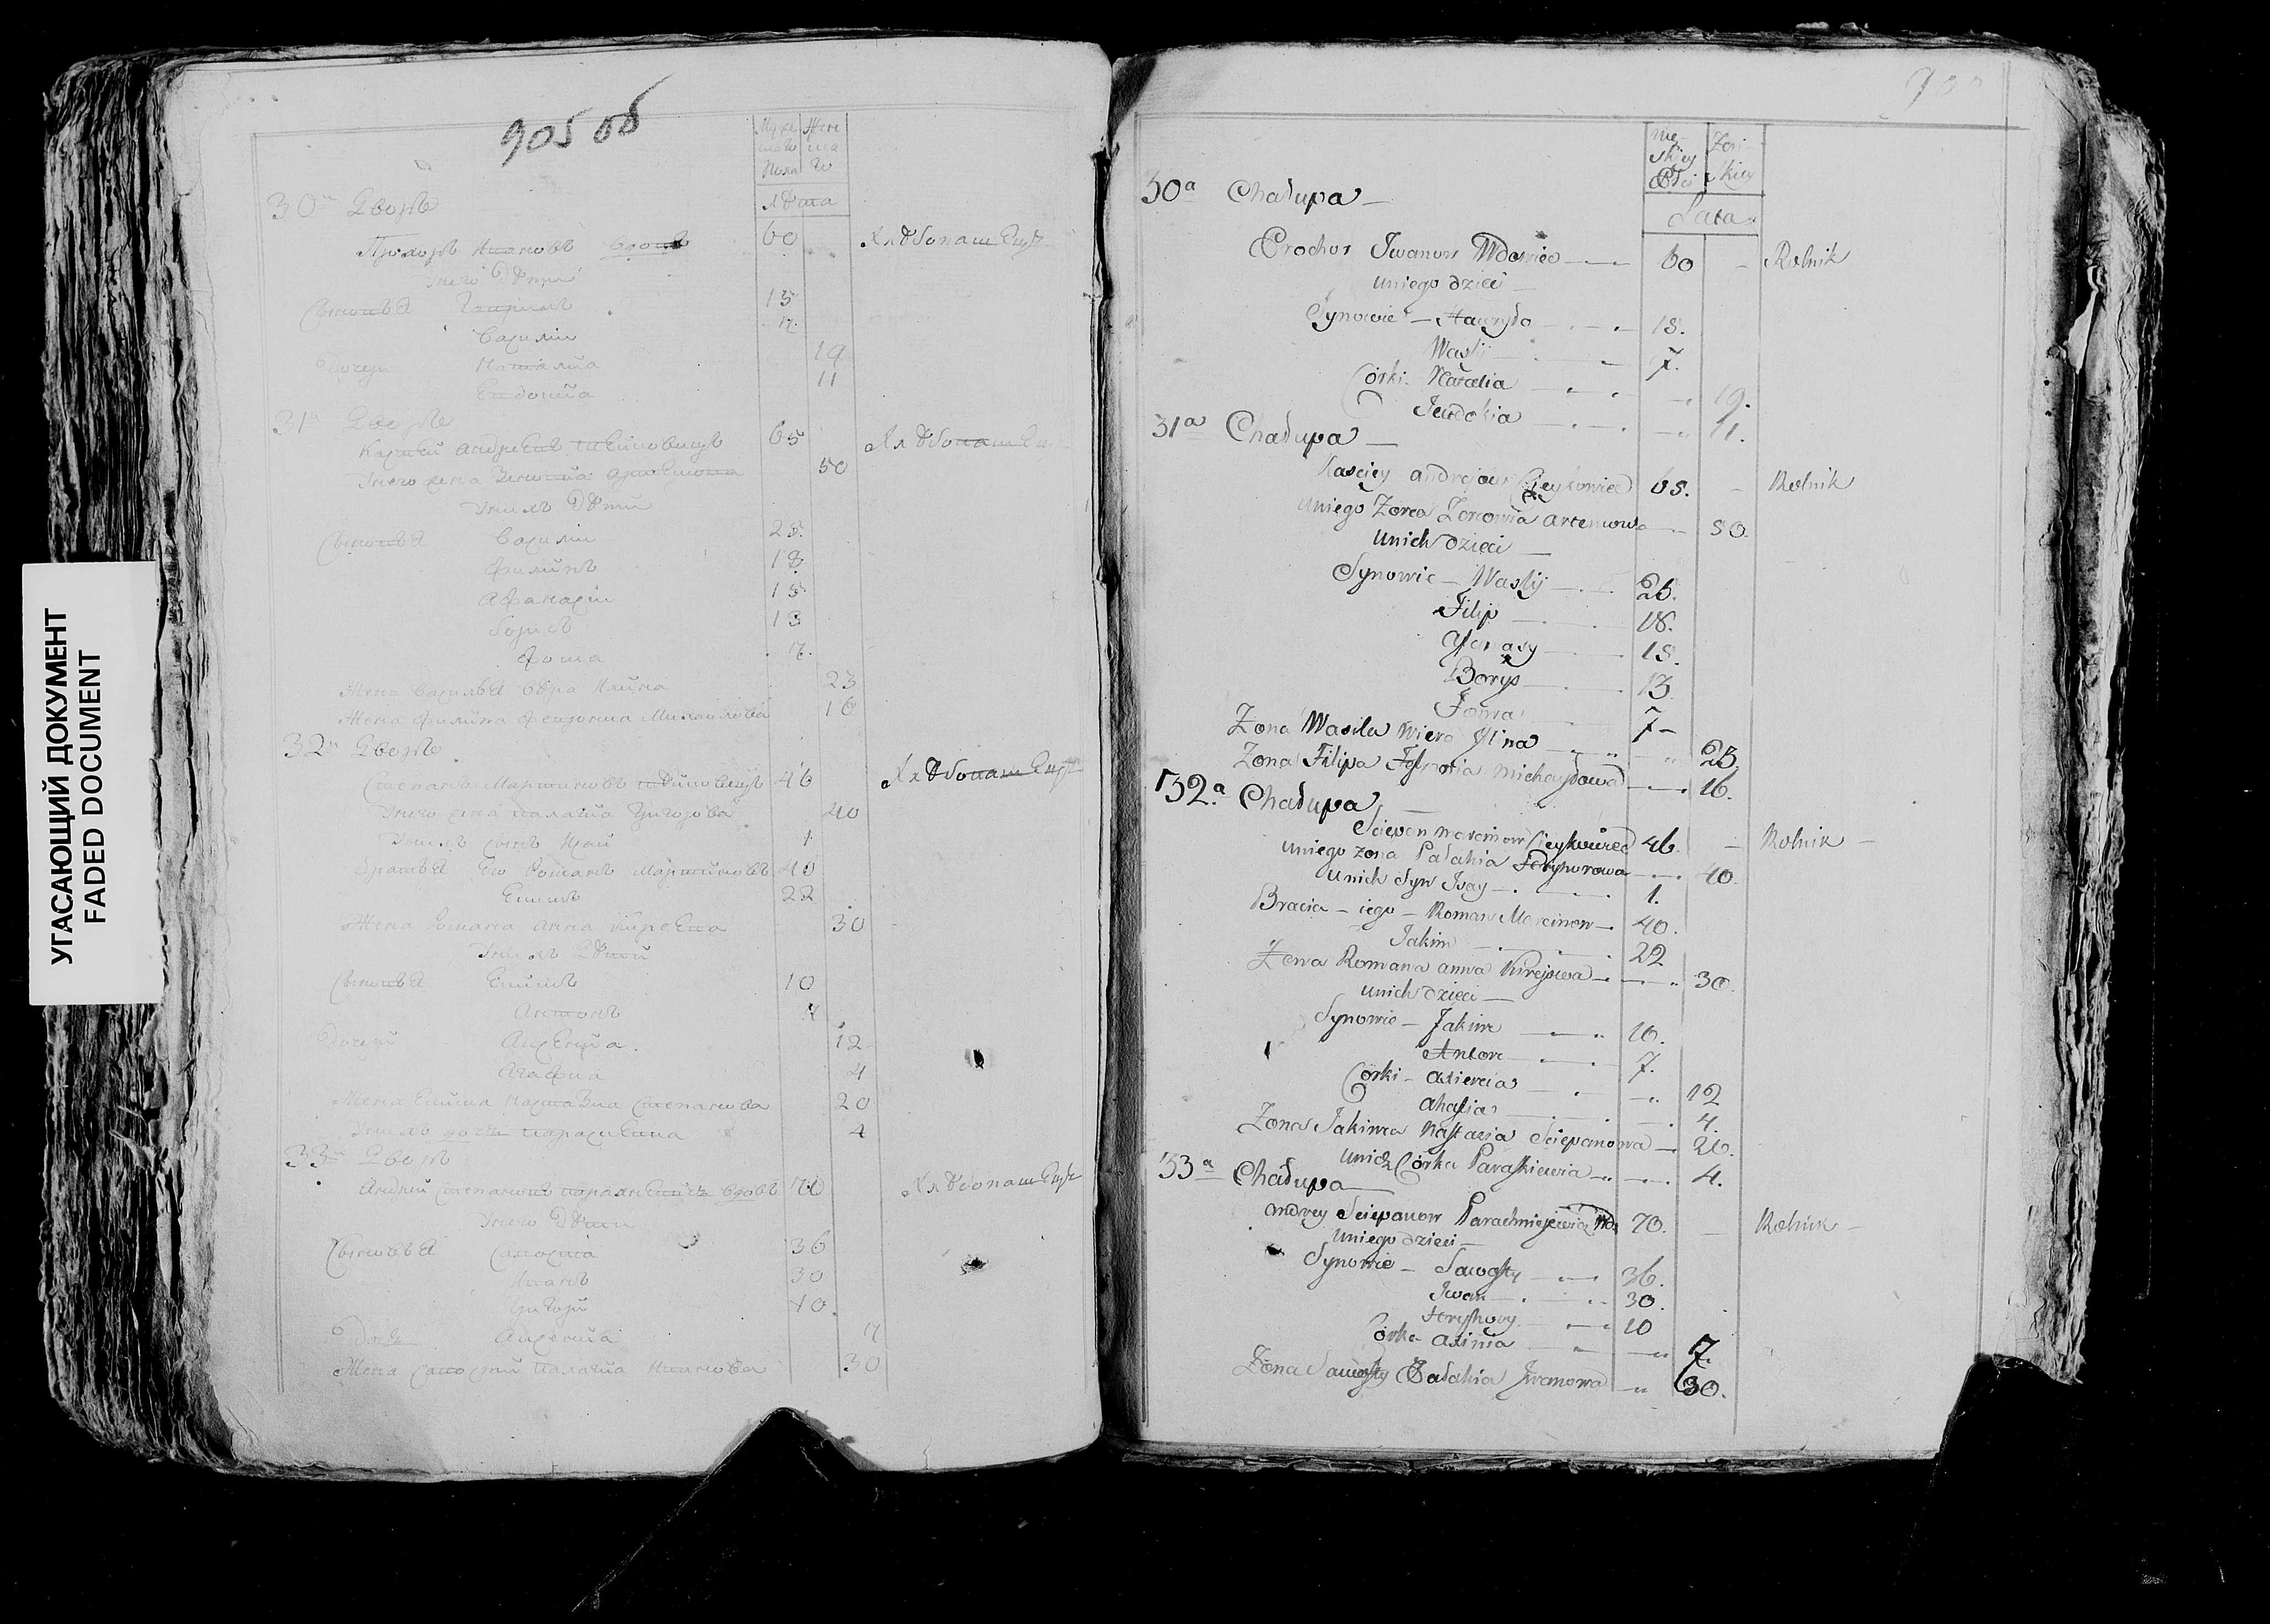 УГАСАЮЩИЙ ДОКУМЕНТ
FADED DOCUMENT
905 об
Муже Жен
ска ска
Пола го
Лѣта
30а Дворъ
Прохоръ Ивановъ вдовъ 60 Хлѣбопашецъ
У него Дѣти
Сыновья Гаврило 15
Василій 7.
Дочери Наталия 19
Евдокия 11
31а Дворъ
Андреевъ 65 Хлѣбопашец
У него жена Зеновия Артемова 50
У них Дѣти
Сыновья Василій 25.
Филипъ 18
Афанасій 15
Борисъ 13
Фома 7.
Жена Василья Вѣра Ильина 23
Жена Филипа Михайлова 16
32а Дворъ
Степанъ Мартиновъ 46 Хлѣбопашецъ
У него жена Палагия Григорьева 40
У нихъ сынъ Исай 1
Братья его Романъ Мартиновъ 40
Екимъ 22
Жена Романа Анна Киреева 30
У нихъ Дѣти
Сыновья Екимъ 10
Антонъ 7
Дочери Аксения 12
Агафия 4
Жена Екима Настазия Степанова 20
У нихъ дочь Параскевия 4
33а Дворъ
Андрей Степановъ вдовъ 70 Хлѣбопашецъ
У него Дѣти
Сыновья Савостей 36
Иванъ 30
Григорий 10.
Дочь Аксения 7
Жена Савостия Палагия Иванова 30
900
Mę- Żeń
skiey skiey
Płci
Lata
30a Chałupa —
Prochor Iwanow Wdowiec 60 — Rolnik
u niego dzieci —
Synowie — Hawryło 15.
Wasilij 7.
Córki Natalia 19.
Jewdokia 11.
31a Chałupa —
Kasciey Andrejow Cieykowiec 65. — Rolnik
u niego Żona Zenowia Artemowa 50.
u nich dzieci —
Synowie — Wasilij 25.
Filip 18.
Afanasy 15.
Borys 13.
Foma 7 —
Żona Wasila Wiera Ilina 23.
Żona Filipa Michayłowa 16.
32.a Chałupa —
Sciepan Marcinow Cieykowiec 46. — Rolnik —
u niego Żona Pałahia Hryhorowa 40.
u nich Syn Isay 1.
Bracia — iego — Roman Marcinow 40.
Jakim 22
Żona Romana Anna Kirejewa 30.
u nich dzieci —
Synowie — Jakim 10.
Anton 7.
Córki — Axienia 12
Ahafia 4.
Żona Jakima Nastazia Sciepanowa 20.
u nich Córka Paraskiewia 4.
33a Chałupa —
Andrey Sciepanow Parachniejewicz Wd. 70. — Rolnik —
u niego dzieci —
Synowie — Sawosty 36.
Iwan 30.
Hryhory 10
Córka Axinia 7.
Żona Sawosty Pałahia Iwanowa 30.